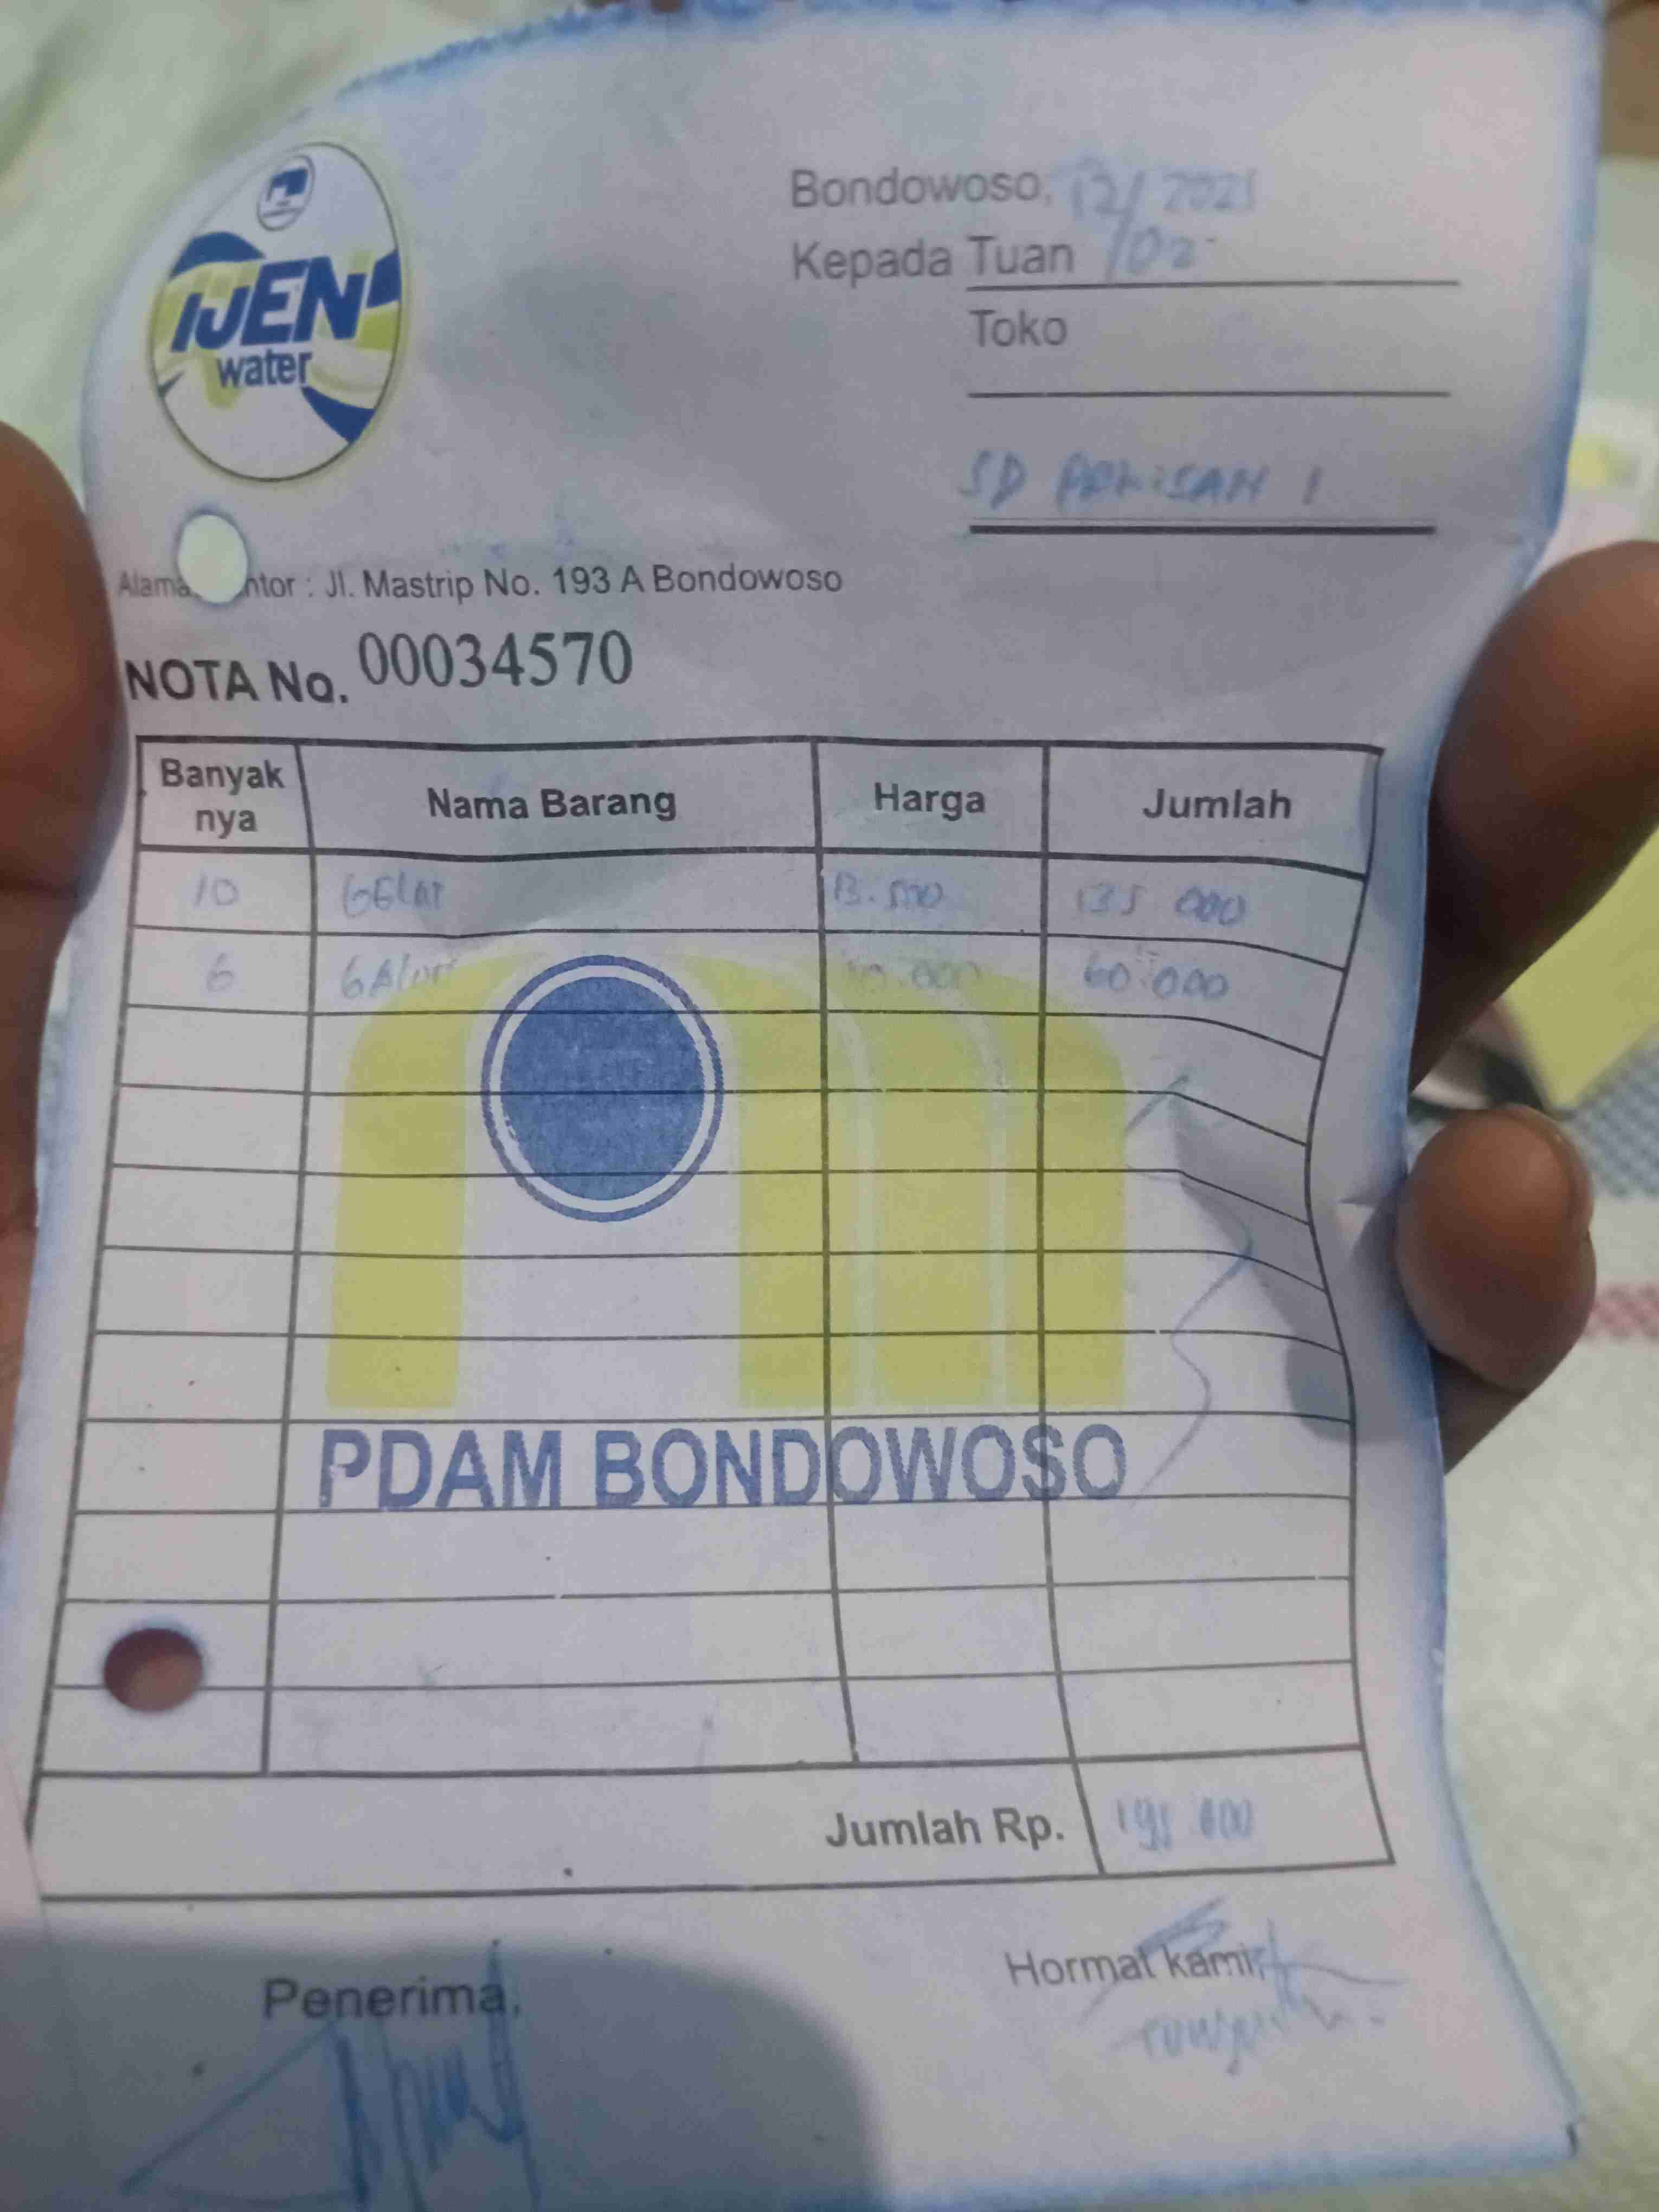 IJEN
water
Bondowoso, 12/ 2021
Kepada Tuan /02
Toko
SD ARDISAN 1
Alama ntor : Jl. Mastrip No. 193 A Bondowoso
NOTA No. 00034570
Banyak nya Nama Barang Harga Jumlah
10 GELAS 13.500 135 000
6 GALON 10.000 60.000
PDAM BONDOWOSO
Jumlah Rp. 195 000
Penerima, Hormat kami,